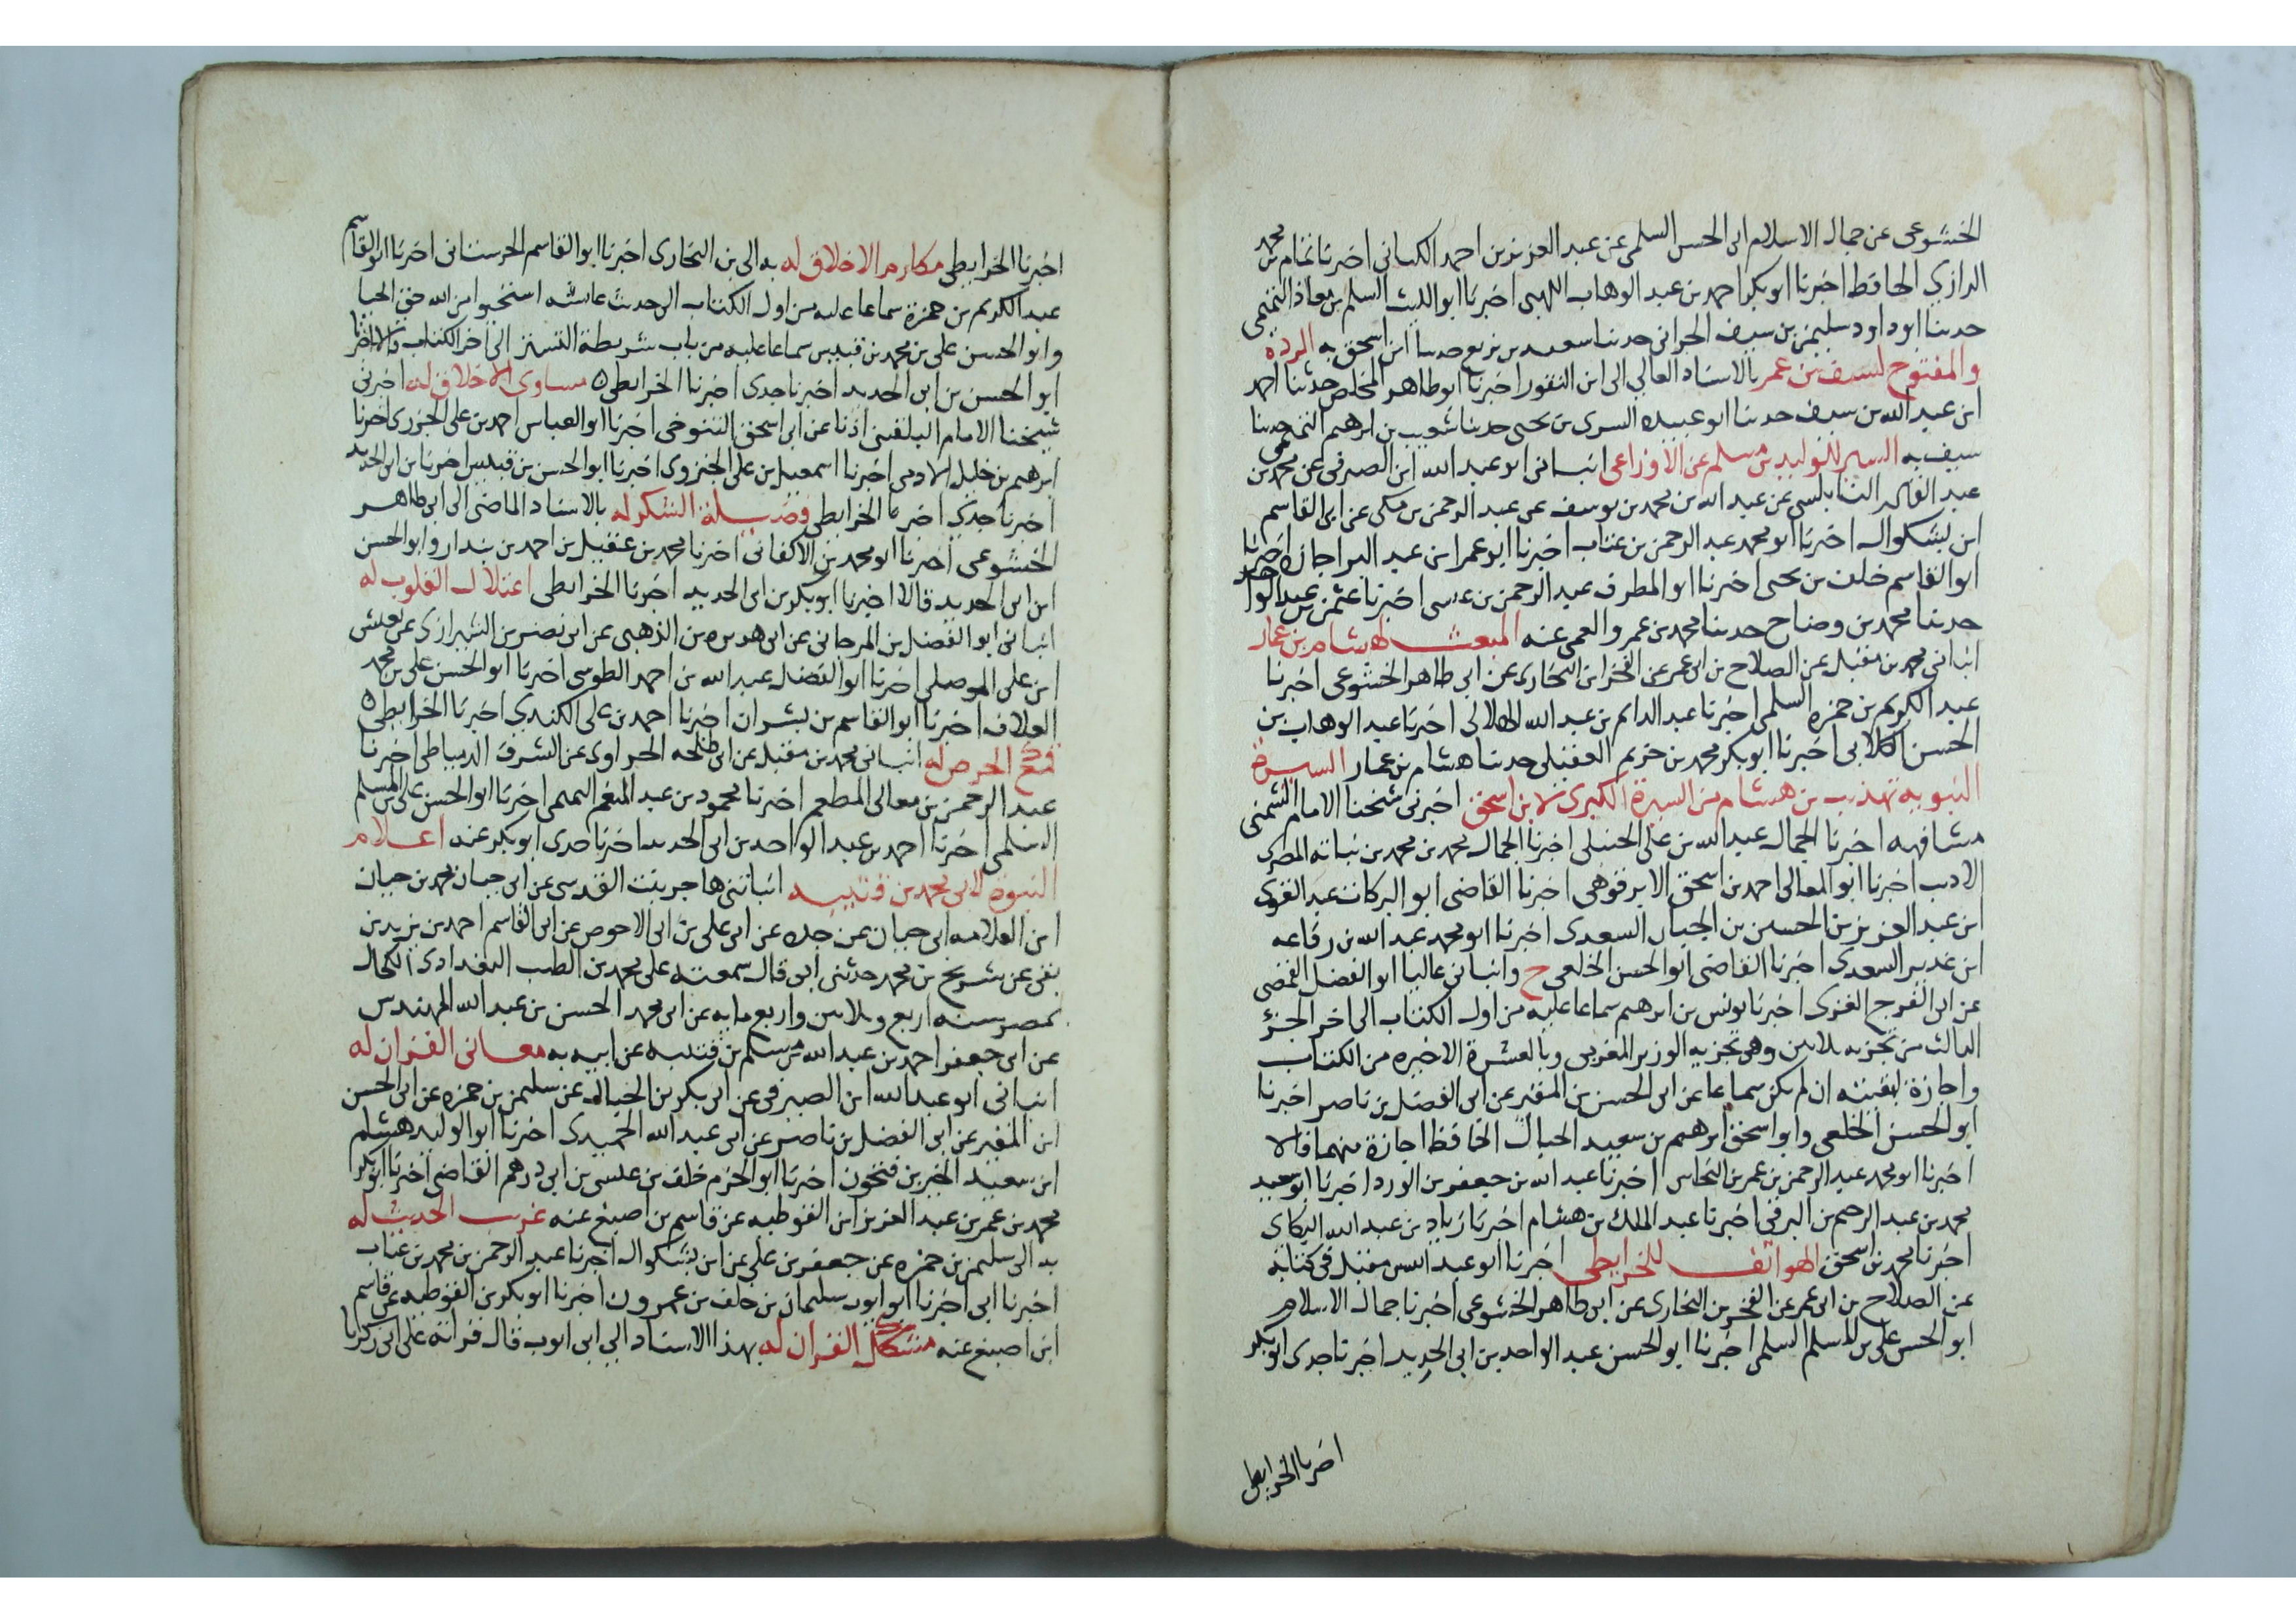 الخشوعى عن جمال الاسلام ابى الحسن السلمى عن عبد العزيز بن احمد الكتانى اخبرنا تمام بن محمد
الرازي الحافظ اخبرنا ابو بكر احمد بن عبد الوهاب اللهبى اخبرنا ابو الليث السلم بن معاذ التميمى
حدثنا ابو داود سليمن بن سيف الحرانى حدثنا سعيد بن بزيع حدثنا ابن اسحق به الرده
والفتوح لسيف بن عمر بالاسناد العالي الى ابن النقور اخبرنا ابو طاهر المخلص حدثنا احمد
ابن عبد الله بن سيف حدثنا ابو عبيده السرى بن يحيى حدثنا شعيب بن ابرهيم التيمى حدثنا
سيف به السير للوليد بن مسلم عن الاوزاعى انبانى ابو عبد الله ابن الصيرفى عن محمد بن
عبد القادر النابلسى عن عبد الله بن محمد بن يوسف عن عبد الرحمن بن مكى عن ابى القاسم
ابن بشكوال اخبرنا ابو محمد عبد الرحمن بن عتاب اخبرنا ابو عمر ابن عبد البر اجازة اخبرنا
ابو القاسم خلف بن يحيى اخبرنا ابو المطرف عبد الرحمن بن عيسى اخبرنا عثمن بن عبد الواحد
حدثنا محمد بن وضاح حدثنا محمد بن عمرو العمى عنه المبعث لهشام بن عمار
انبانى محمد بن مقبل عن الصلاح بن ابى عمر عن الفخر ابن البخارى عن ابى طاهر الخشوعى اخبرنا
عبد الكريم بن حمزه السلمى اخبرنا عبد الدايم بن عبد الله الهلالى اخبرنا عبد الوهاب بن
الحسن الكلابى اخبرنا ابو بكر محمد بن خريم العقيلى حدثنا هشام بن عمار السيرة
النبوية تهذيب بن هشام من السيرة الكبرى لابن اسحق اخبرنى شيخنا الامام الشمنى
مشافهه اخبرنا الجمال عبد الله بن على الحنبلى اخبرنا الجمال محمد بن محمد بن نباته المصرى
الاديب اخبرنا ابو المعالى احمد بن اسحق الابرقوهى اخبرنا القاضى ابو البركات عبد القوى
ابن عبد العزيز بن الحسين بن الجباب السعدى اخبرنا ابو محمد عبد الله بن رفاعه
ابن غدير السعدى اخبرنا القاضى ابو الحسن الخلعى ح وانبانى عاليا ابو الفضل القمصى
عن ابى الفرج الغزى اخبرنا يونس بن ابرهيم سماعا عليه من اول الكتاب الى اخر الجزؤ
الثالث من تجزيه ثلاثين وهو تجزيه الوزير المغربى وبالعشرة الاخيره من الكتاب
واجازة لبقيته ان لم يكن سماعا عن ابى الحسن بن المقير عن ابى الفضل بن ناصر اخبرنا
ابو الحسن الخلعى وابو اسحق ابرهيم بن سعيد الحبال الحافظ اجازة منهما قالا
اخبرنا ابو محمد عبد الرحمن بن عمر بن النحاس اخبرنا عبد الله بن جعفر بن الورد اخبرنا ابو سعيد
محمد بن عبد الرحيم بن البرقى اخبرنا عبد الملك بن هشام اخبرنا زياد بن عبد الله البكاى
اخبرنا محمد بن اسحق الهواتف للخرايطى اخبرنا ابو عبد الله بن مقبل فى كتابه
عن الصلاح بن ابى عمر عن الفخر بن البخارى عن ابى طاهر الخشوعى اخبرنا جمال الاسلام
ابو الحسن على بن المسلم السلمى اخبرنا ابو الحسن عبد الواحد بن ابى الحديد اخبرنا جدى ابو بكر
اخبرنا الخرايطى
اخبرنا الخرايطى مكارم الاخلاق له به الى بن البخارى اخبرنا ابو القاسم الحرستانى اخبرنا ابو القاسم
عبد الكريم بن حمزة سماعا عليه من اول الكتاب الى حديث عايشه استحيوا من الله حق الحيا
وابو الحسن على بن محمد بن قبيس سماعا عليه من باب شريطة التستر الى اخر الكتاب قالا اخبرنا
ابو الحسن بن ابى الحديد اخبرنا جدى اخبرنا الخرايطى ه مساوى الاخلاق له اخبرنى
شيخنا الامام البلقينى اذنا عن ابى اسحق التنوخى اخبرنا ابو العباس احمد بن على الجزرى اخبرنا
ابرهيم بن خليل الادمى اخبرنا اسمعيل بن على الجنزوى اخبرنا ابو الحسن بن قبيس اخبرنا بن ابى الحديد
اخبرنا جدى اخبرنا الخرايطى فضيلة الشكر له بالاسناد الماضى الى ابى طاهر
الخشوعى اخبرنا ابو محمد بن الاكفانى اخبرنا محمد بن عقيل بن احمد بن بندار وابو الحسن
ابن ابى الحديد قالا اخبرنا ابو بكر بن ابى الحديد اخبرنا الخرايطى اعتلال القلوب له
انبانى ابو الفضل بن المرجانى عن ابى هريره بن الذهبى عن ابى نصر بن الشيرازى عن يعيش
ابن على الموصلى اخبرنا ابو الفضل عبد الله بن احمد الطوسى اخبرنا ابو الحسن على بن محمد
العلاف اخبرنا ابو القاسم بن بشران اخبرنا احمد بن على الكندى اخبرنا الخرايطى ه
قمع الحرص له انبانى محمد بن مقبل عن ابى طلحه الحراوى عن الشرف الدمياطى اخبرنا
عبد الرحمن بن معالى المطعم اخبرنا محمود بن عبد المنعم التميمى اخبرنا ابو الحسن على بن المسلم
السلمى اخبرنا احمد بن عبد الواحد بن ابى الحديد اخبرنا جدى ابو بكر عنه اعلام
النبوة لابى محمد بن قتيبه انباتنى هاجر بنت القدسى عن ابى حيان محمد بن حيان
ابن العلامه ابى حيان عن جده عن ابى على بن ابى الاحوص عن ابى القاسم احمد بن يزيد بن
بقى عن شريح بن محمد حدثنى ابى قال سمعته على محمد بن الطيب البغدادى الكحال
بمصر سنه اربع وثلاثين واربع مايه عن ابى محمد الحسن بن عبد الله المهندس
عن ابى جعفر احمد بن عبد الله بن مسلم بن قتيبه عن ابيه به معانى القران له
انبانى ابو عبد الله ابن الصيرفى عن ابى بكر بن الخباله عن سليمن بن حمزه عن ابى الحسن
ابن المقير عن ابى الفضل بن ناصر عن ابى عبد الله الحميدى اخبرنا ابو الوليد هشام
ابن سعيد الخير بن فتحون اخبرنا ابو الحزم خلف بن عيسى بن ابى درهم القاضى اخبرنا ابو بكر
محمد بن عمر بن عبد العزيز ابن القوطيه عن قاسم بن اصبغ عنه غريب الحديث له
به الى سليمن بن حمزه عن جعفر بن على عن ابن بشكوال اخبرنا عبد الرحمن بن محمد بن عتاب
اخبرنا ابى اخبرنا ابو ايوب سليمان بن خلف بن عمرون اخبرنا ابو بكر بن القوطيه عن قاسم
ابن اصبغ عنه مشكل القران له بهذا الاسناد الى ابى ايوب قال قراته على ابى زكريا